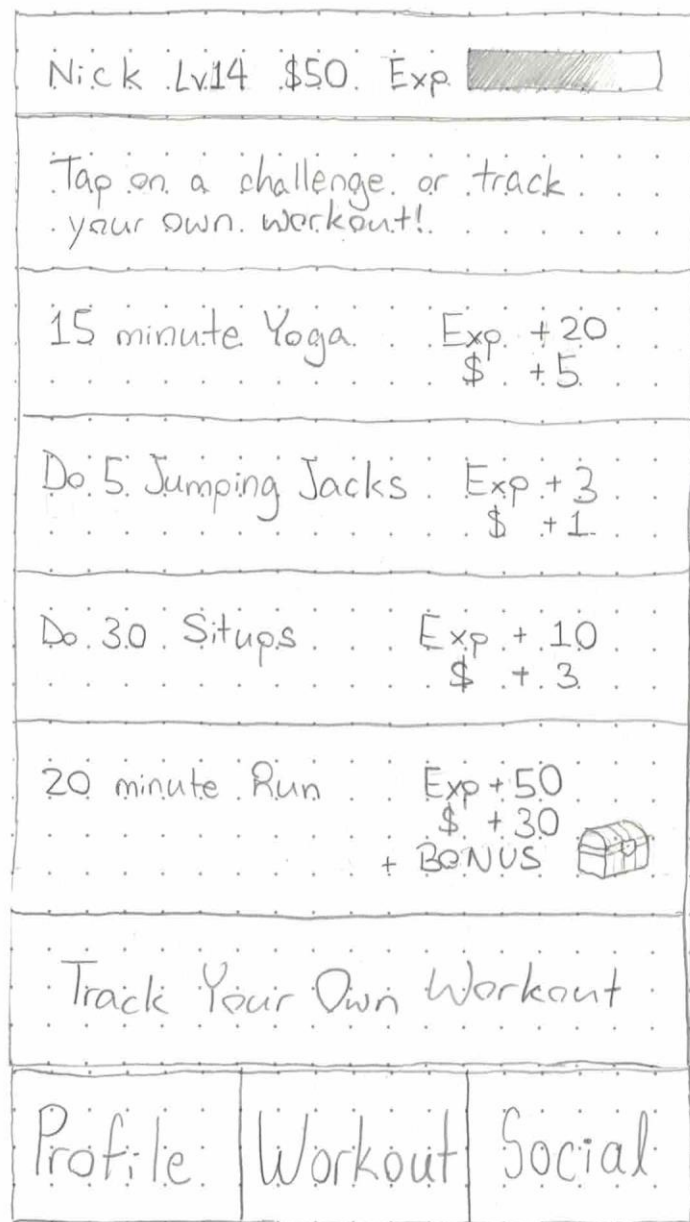 Nick Lv14 $50 Exp
Tap on a challenge or track
your own workout!
15 minute Yoga Exp +20
$ +5
Do 5 Jumping Jacks Exp +3
$ +1
Do 30 Situps Exp + 10
$ + 3
20 minute Run Exp +50
$ +30
+ BONUS
Track Your Own Workout
Profile Workout Social